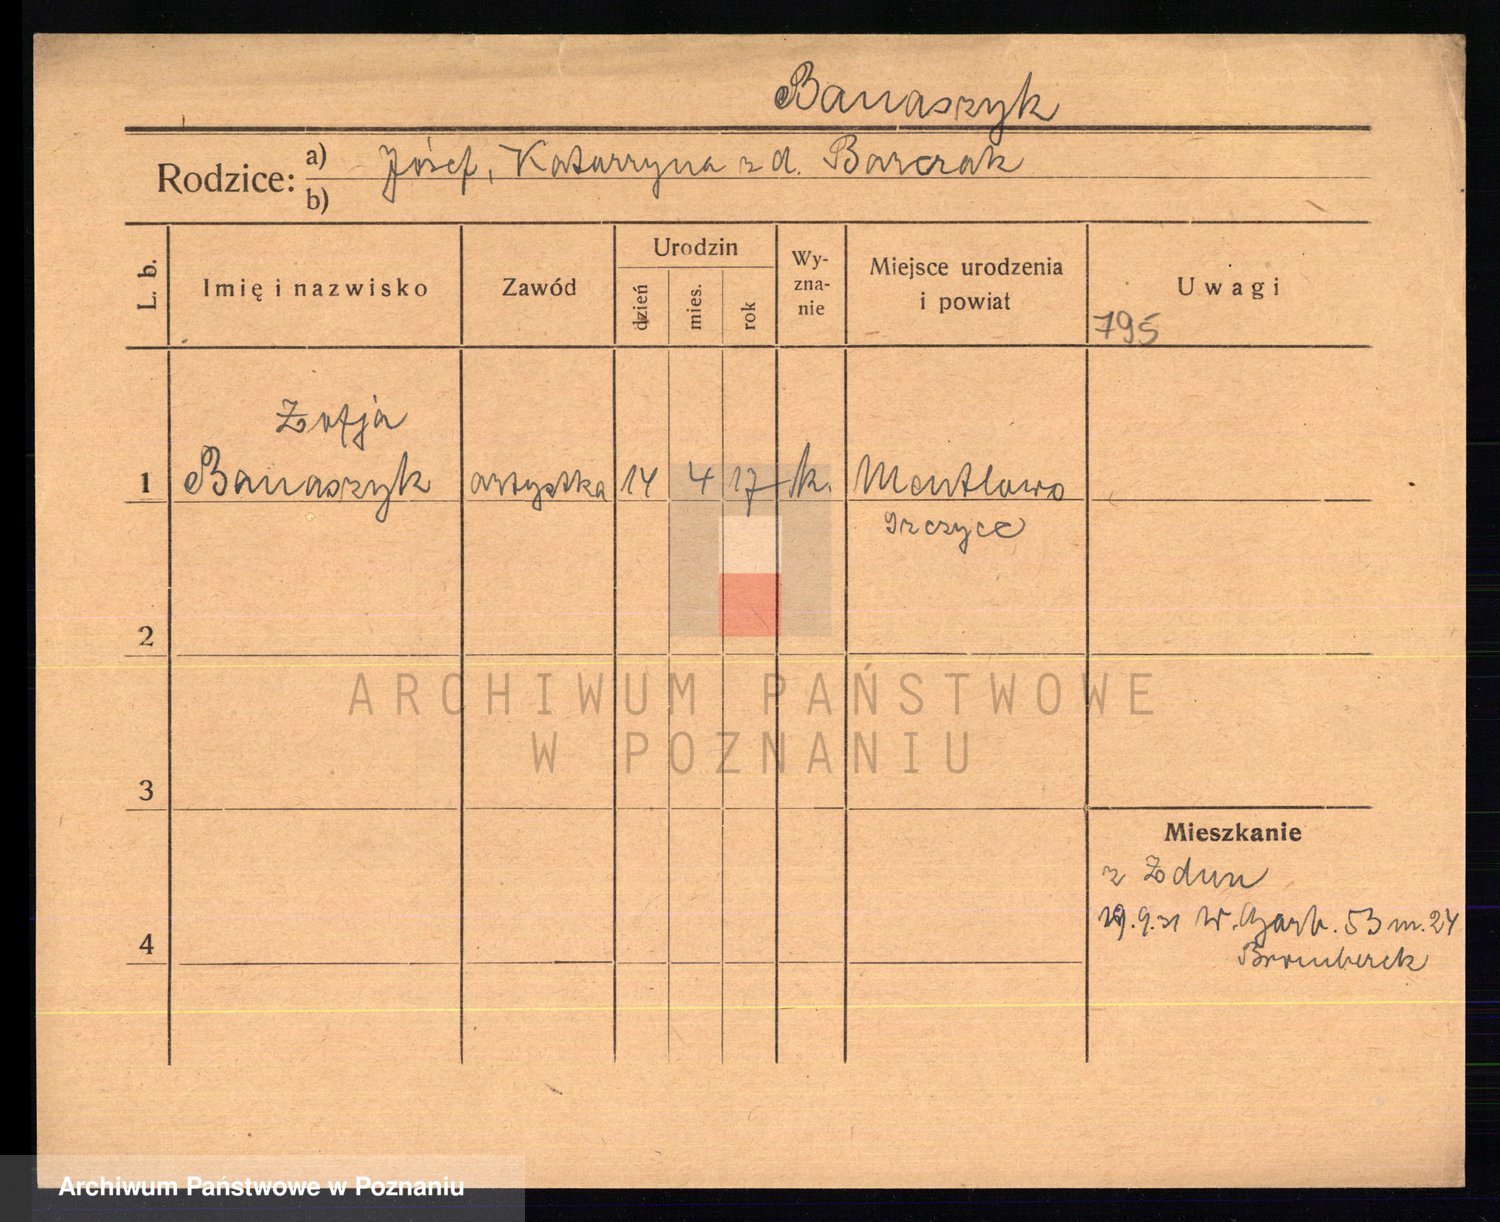 Banaszyk
Rodzice: a) Józef, Katarzyna z d. Barczak
b)
L. b. Imię i nazwisko Zawód Urodzin dzień mies. rok Wyznanie Miejsce urodzenia i powiat Uwagi
795
Zofja
1 Banaszyk artystka 14 4 17 k.
2
ARCHIWUM PAŃSTWOWE
W POZNANIU
3
Mieszkanie
z Zdun
W. Garb. 53 m. 24
4
Archiwum Państwowe w Poznaniu